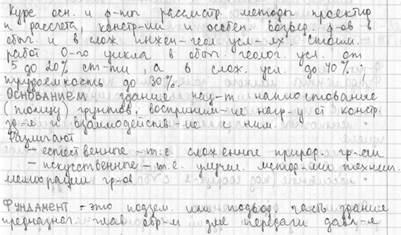 Курс осн. и ф-ты рассматр. методы проектир
и рассчета, констр-ии и особен. возвед. ф-ов в
обыч и в слож инжен-геол усл-ях. Стоим.
работ 0-го цикла в обыч. геолог. усл. от
5 до 20% ст-ти, а в слож. усл до 40%.
трудоемкость до 30%.
Основанием здание наз-т. напластование
(толщу) грунтов, восприним-ие нагр-у от констр.
зд-я и взаимодейств-ие с ним.
Различают
- естественные - т.е. сложенные природ. гр-ами
- искусственные - т.е. укреп. метод-ами технич.
мелиорации гр-ов
Фундамент - это подзем. или подвод часть здания
предназнач. глав обр-м для передачи давл-я